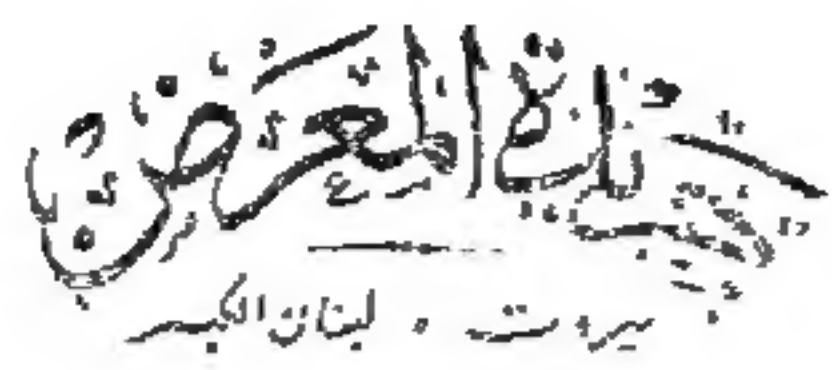 المعرض
بيروت . لبنان الكبير